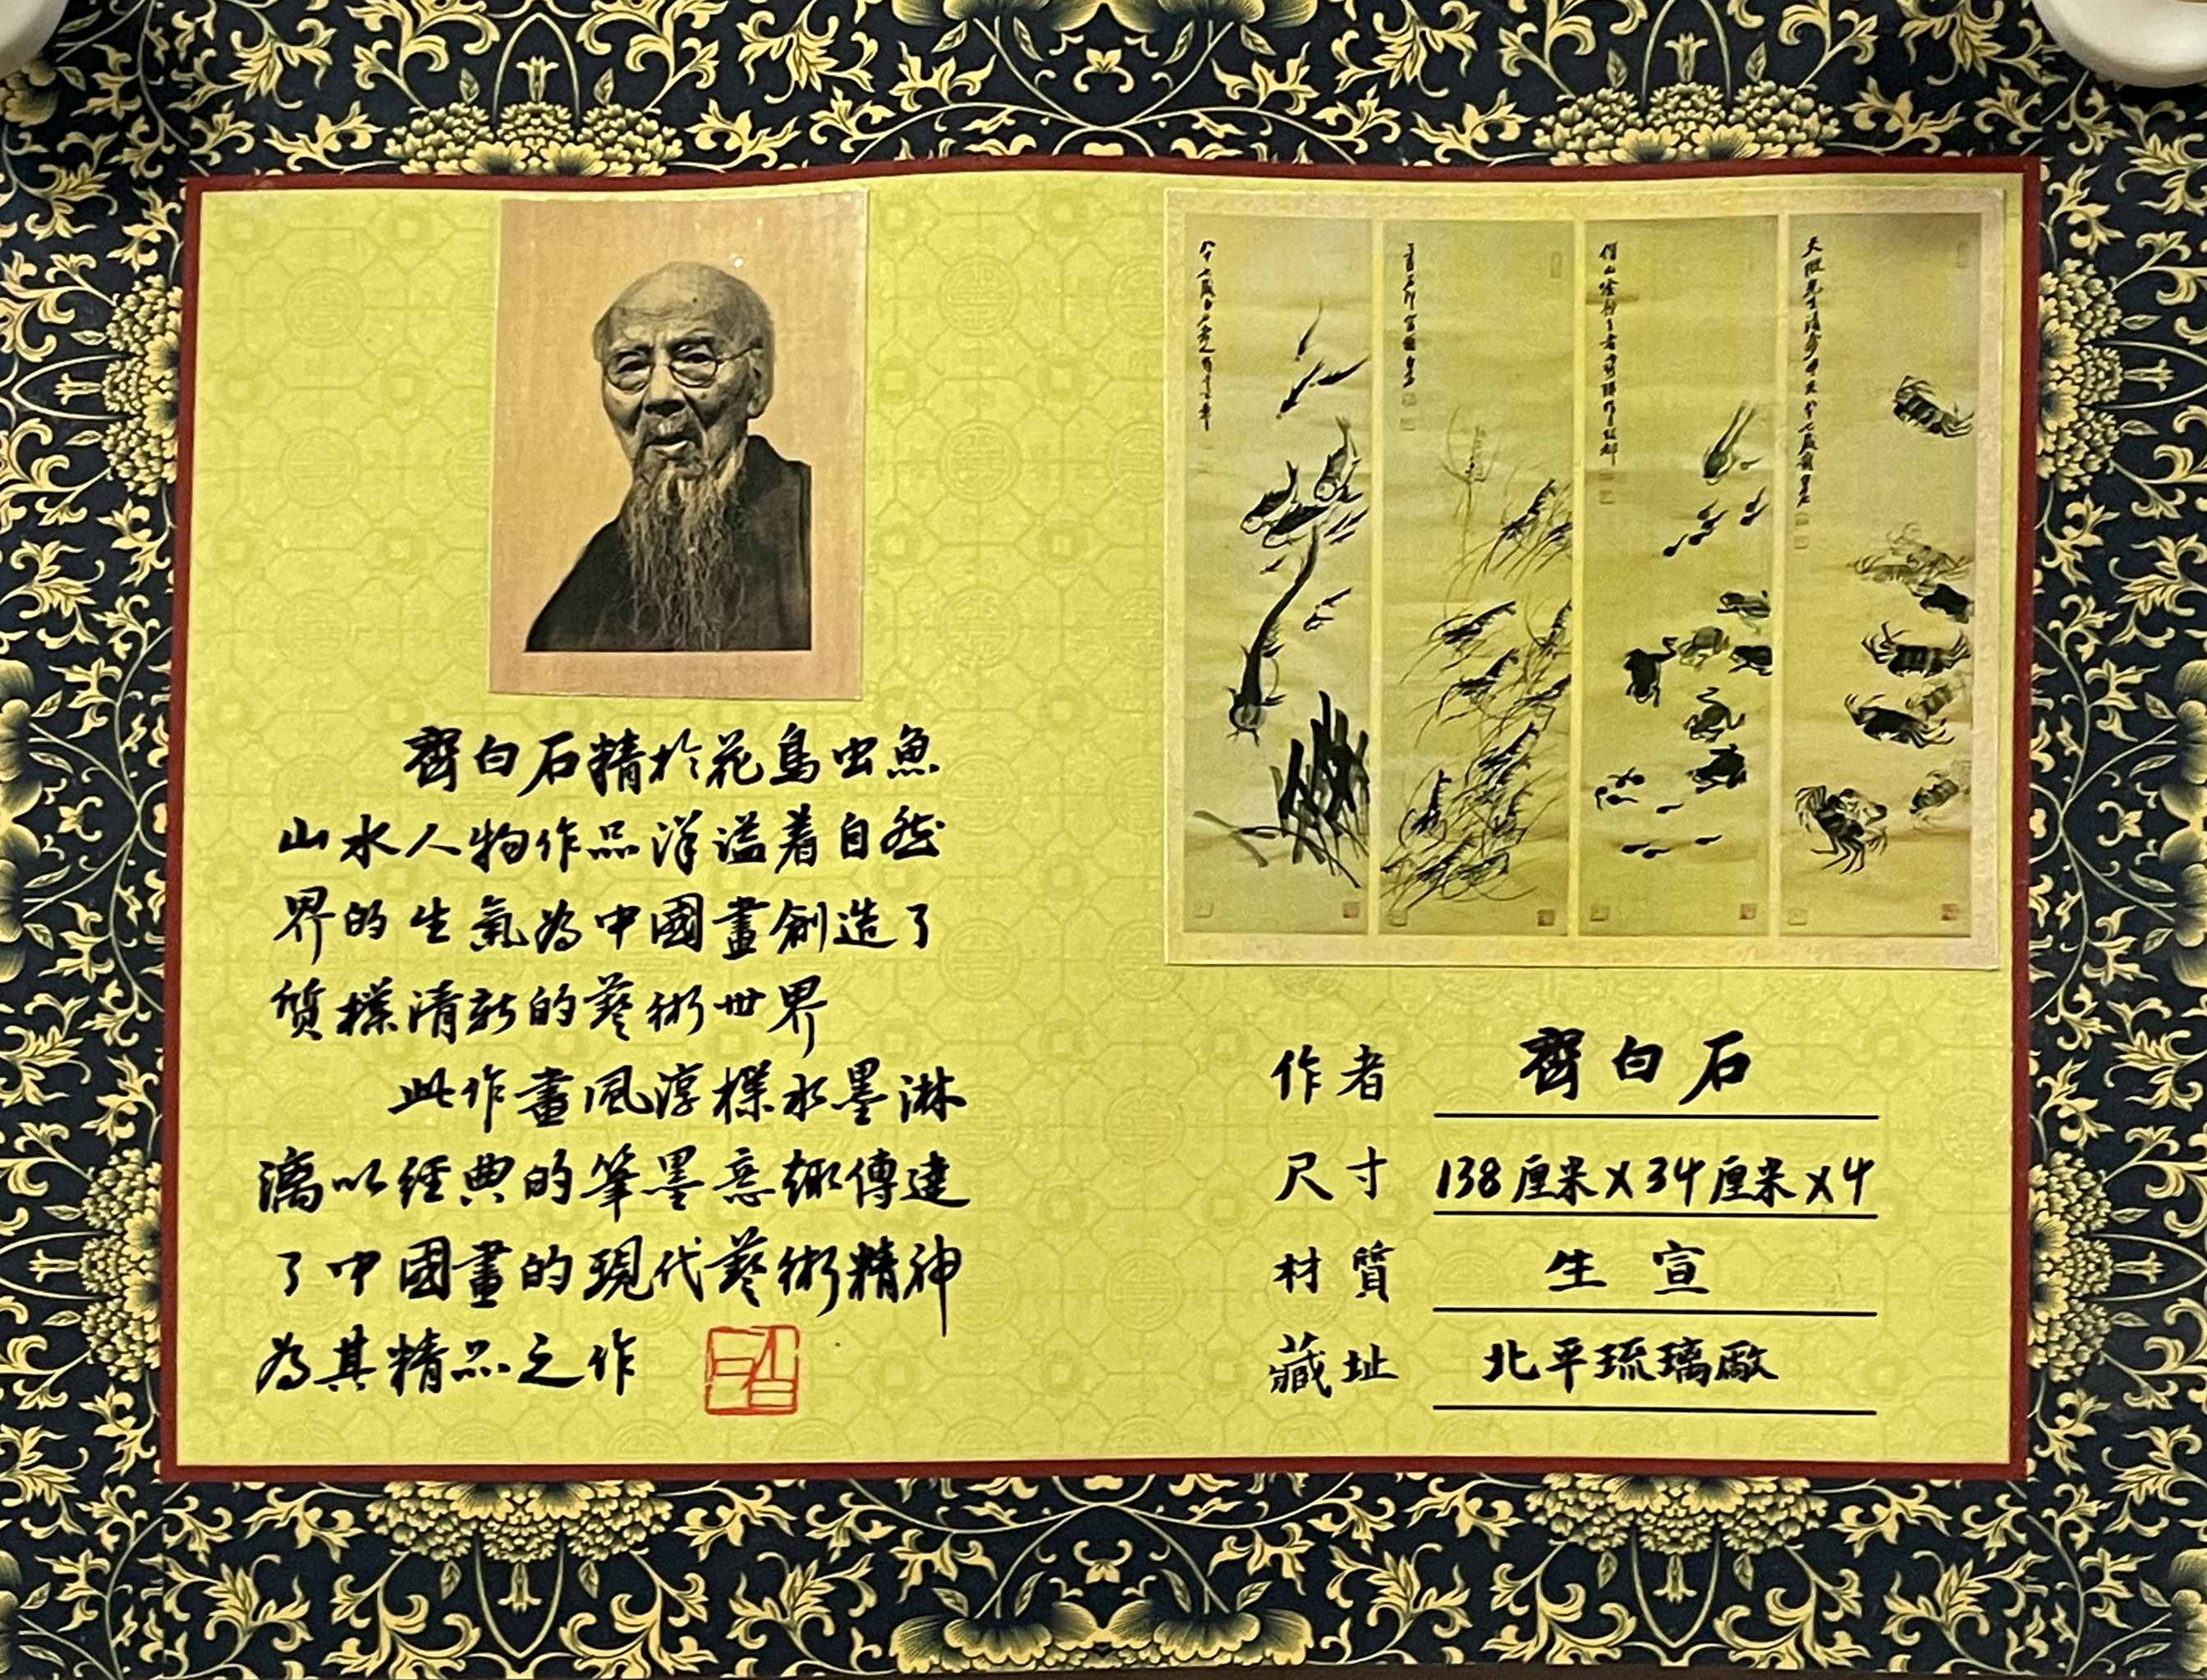 齊白石精於花鳥虫魚
山水人物作品洋溢着自然
界的生氣為中國畫創造了
質樸清新的藝術世界
此作畫風淳樸水墨淋
漓以經典的筆墨意趣傳達
了中國畫的現代藝術精神
為其精品之作
作者 齊白石
尺寸 138厘米X34厘米X4
材質 生宣
藏址 北平琉璃廠